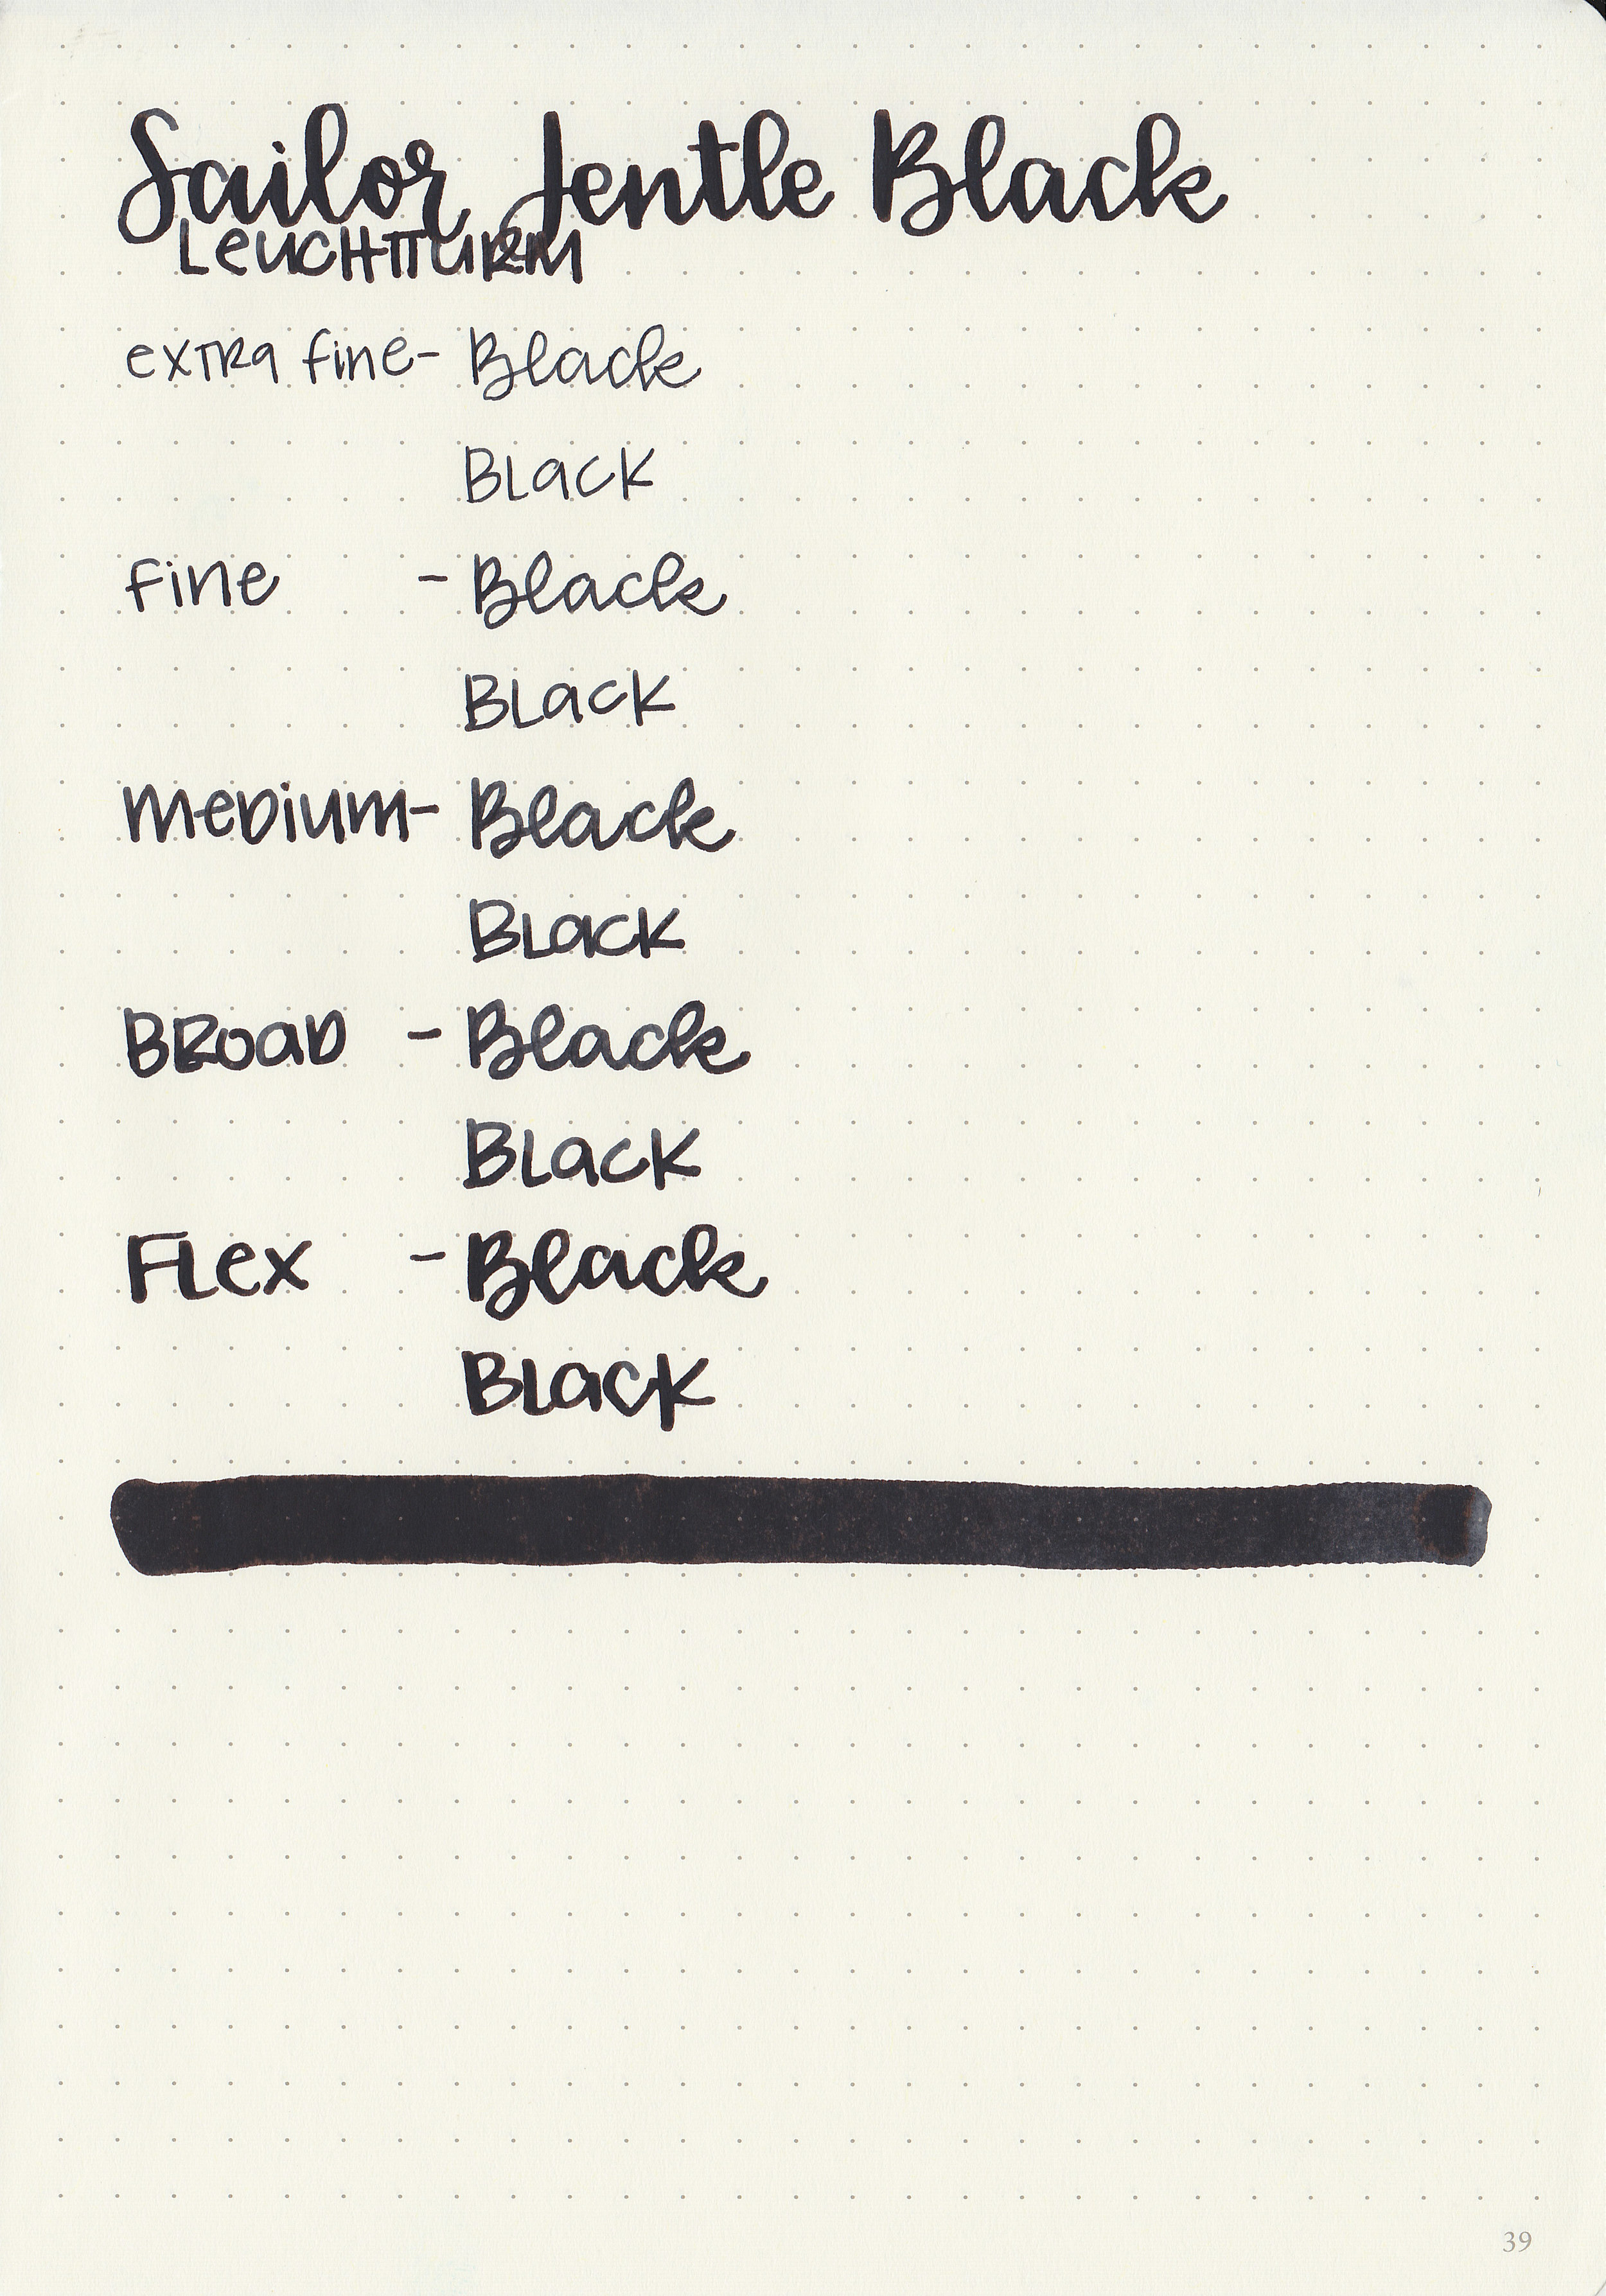 Sailor Jentle Black
LeucHTTURM
exTRa fine- Black
BLack
fine - Black
BLack
meDium- Black
BLack
BROaD - Black
BLack
FLex - Black
BLack
39